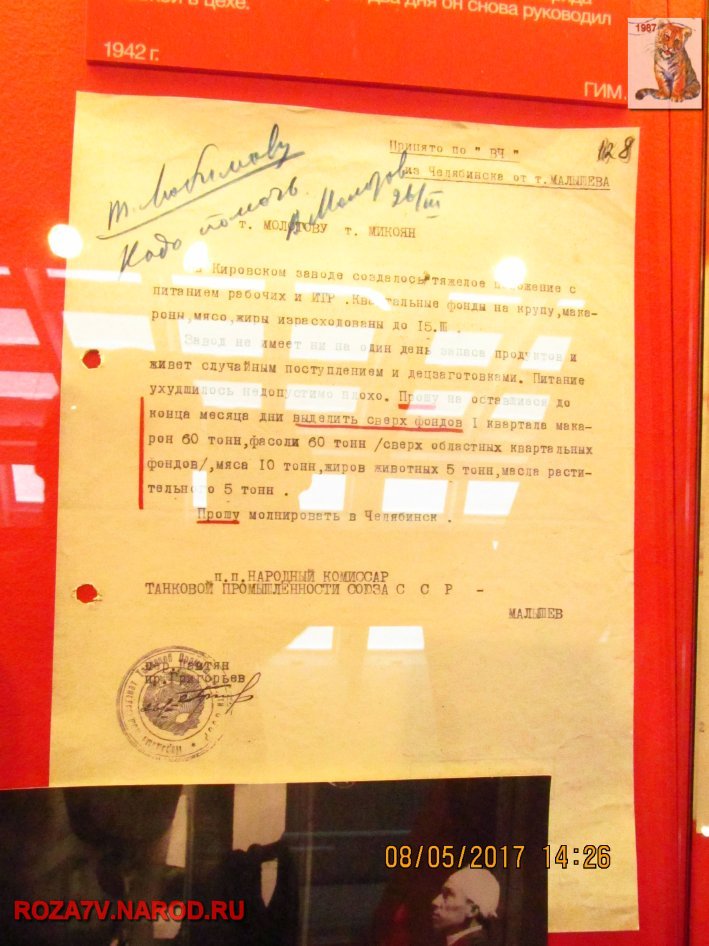 он снова руководил
в цехе.
1942 г.
ГИМ.
1987
Принято по " ВЧ "
128
из Челябинска от т.МАЛЫШЕВА
т. Любимову
Надо помочь
В. Молотов
26/III
т. МОЛОТОВУ т. МИКОЯН
Кировском заводе создалось тяжелое положение с
питанием рабочих и ИТР .Квартальные фонды на крупу,мака-
роны,мясо,жиры израсходованы до 15.III .
Завод не имеет ни на один день запаса продуктов и
живет случайным поступлением и децзаготовками. Питание
ухудшилось недопустимо плохо. Прошу на оставшиеся до
конца месяца дни выделить сверх фондов I квартала мака-
рон 60 тонн,фасоли 60 тонн /сверх областных квартальных
фондов/,мяса 10 тонн,жиров животных 5 тонн,масла расти-
тельного 5 тонн .
Прошу молнировать в Челябинск .
п.п.НАРОДНЫЙ КОМИССАР
ТАНКОВОЙ ПРОМЫШЛЕННОСТИ СОЮЗА С С Р -
МАЛЫШЕВ
пр.Григорьев
08/05/2017 14:26
ROZA7V.NAROD.RU